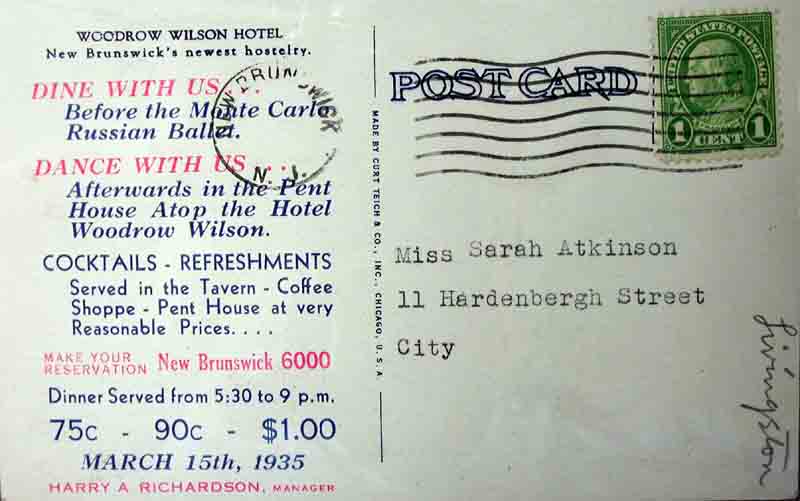 WOODROW WILSON HOTEL
New Brunswick's newest hostelry.
DINE WITH US . . .
Before the Monte Carlo
Russian Ballet.
DANCE WITH US . . .
Afterwards in the Pent
House Atop the Hotel
Woodrow Wilson.
COCKTAILS - REFRESHMENTS
Served in the Tavern - Coffee
Shoppe - Pent House at very
Reasonable Prices. . . .
MAKE YOUR
RESERVATION New Brunswick 6000
Dinner Served from 5:30 to 9 p.m.
75c - 90c - $1.00
MARCH 15th, 1935
HARRY A RICHARDSON, MANAGER
NEW BRUNSWICK
N. J.
MADE BY CURT TEICH & CO., INC., CHICAGO, U. S. A.
POST CARD
UNITED STATES POSTAGE
1 CENT 1
Miss Sarah Atkinson
11 Hardenbergh Street
City
Livingston